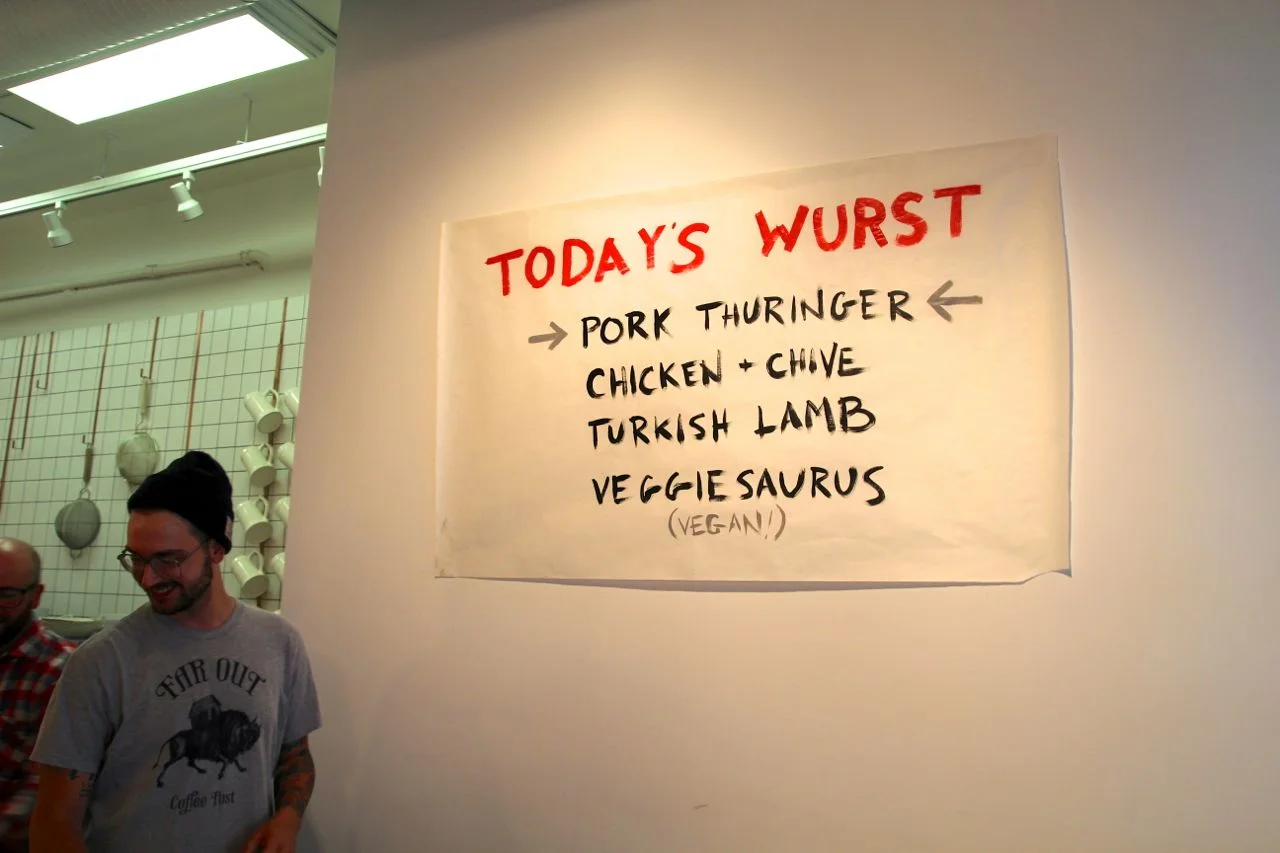 TODAY'S WURST
→ PORK THURINGER ←
CHICKEN + CHIVE
TURKISH LAMB
VEGGIESAURUS
(VEGAN!)
FAR OUT
Coffee Post